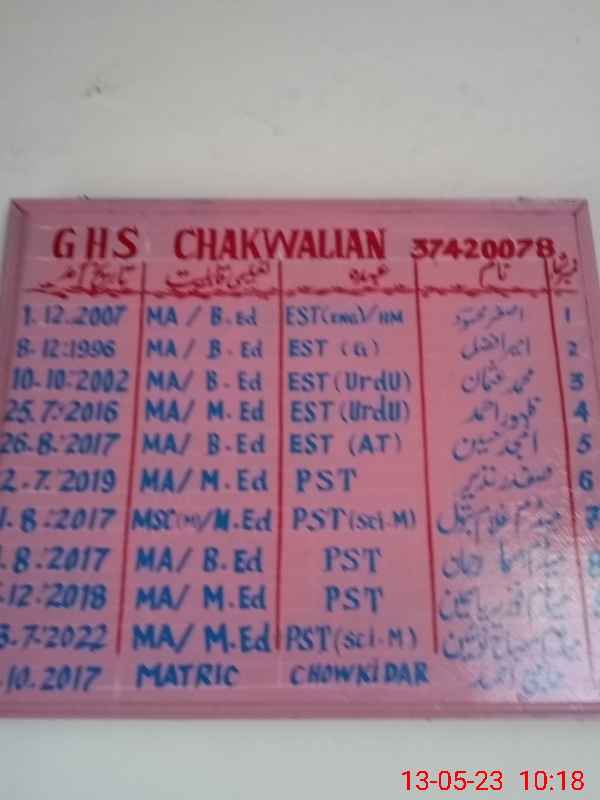 GHS CHAKWALIAN 37420078
نمبرشمار نام عہدہ تعلیمی قابلیت تاریخ آمد
1 اصغر محمود EST(ENG)/HM MA / B.Ed 1.12.2007
2 امیر افضل EST (G) MA / B.Ed 8-12:1996
3 محمد عثمان EST(UrdU) MA/ B.Ed 10-10:2002
4 ظہور احمد EST(UrdU) MA/ M.Ed 25.7:2016
5 امجد حسین EST (AT) MA/ B.Ed 26.8.2017
6 صفدر نذیر PST MA/M.Ed 2.7.2019
7 میڈم غلام بتول PST(sci-M) MSC(M)/M.Ed 1.8.2017
8 میڈم PST MA/ B.Ed .8.2017
میڈم PST MA/ M.Ed .12:2018
میڈم PST(sci-M) MA/ M.Ed 3.7.2022
احمد CHOWKIDAR MATRIC .10.2017
13-05-23 10:18